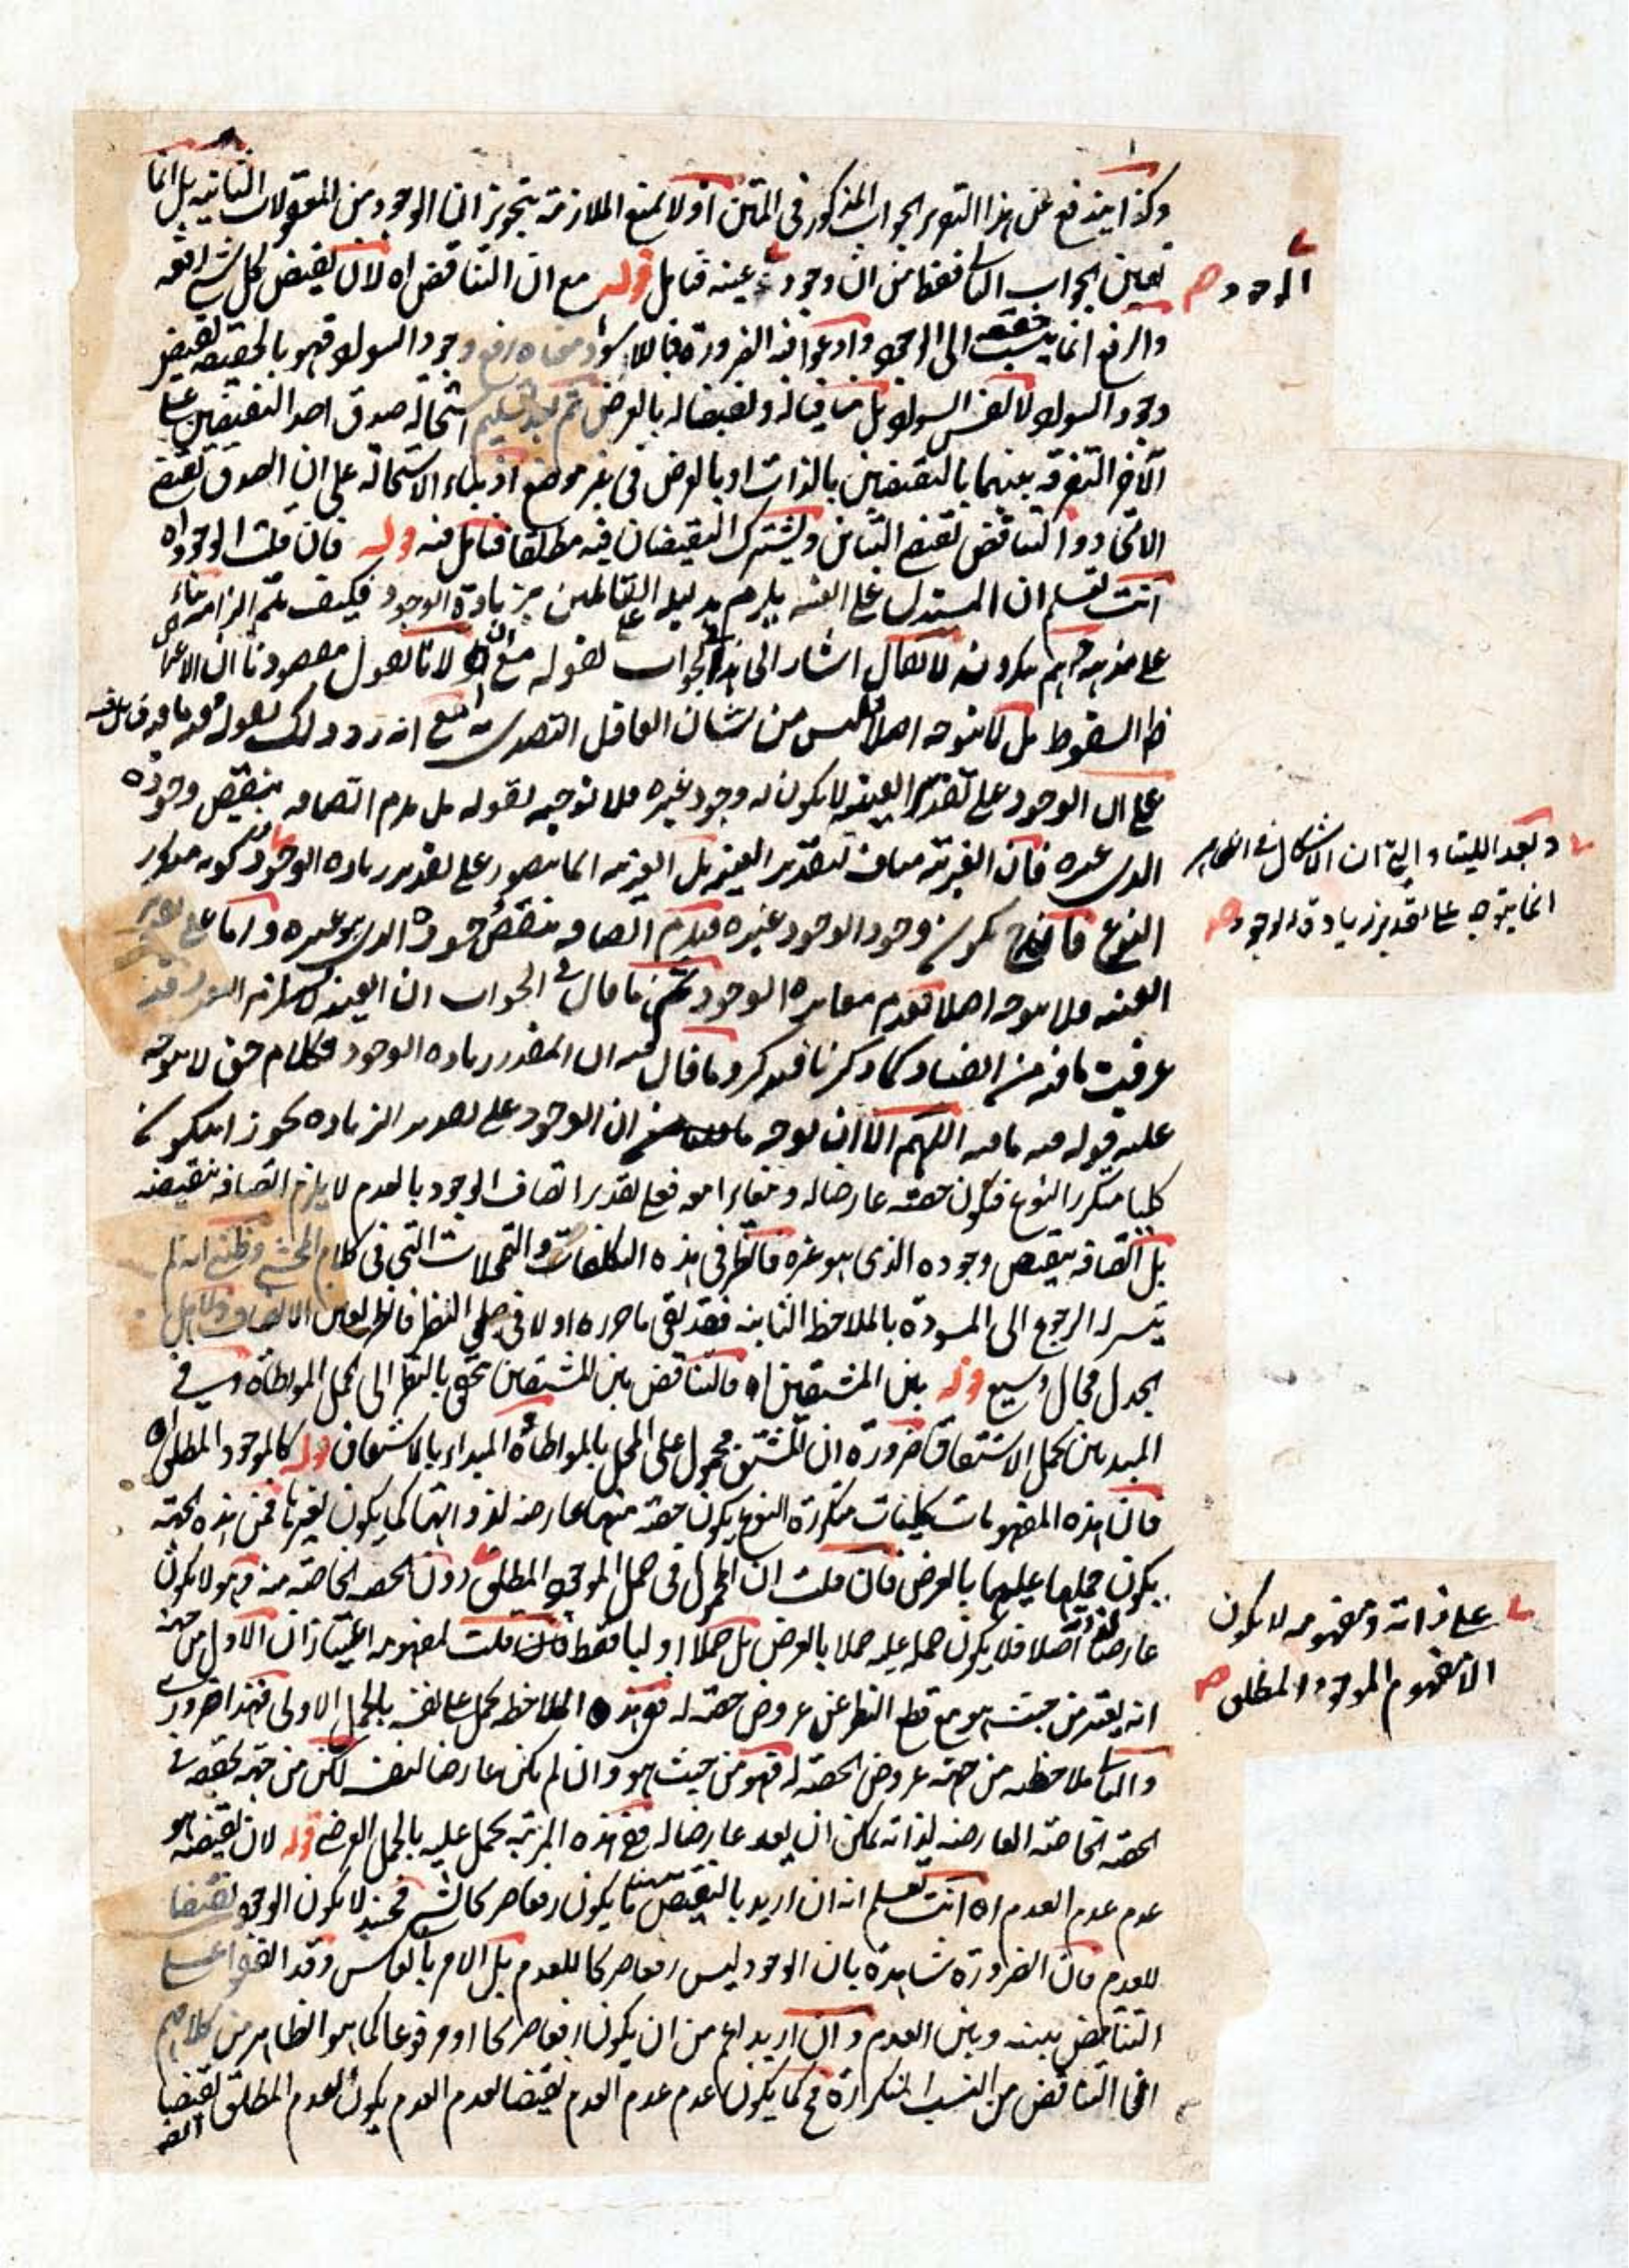 وكذا يندفع عن هذا التقرير الجواب المذكور في المتن اولا بمنع الملازمة بتجويز ان الوجود من المعقولات الثانية بل انما
تعين الجواب الثاني فقط من ان وجود عينه فتامل قوله مع ان التناقض اه لان نقيض كل شيء رفعه
والرفع انما ينسب حقيقة الى الوجود وادعوا فيه الضرورة فاللاسواد معناه رفع وجود السواد فهو بالحقيقة نقيض
وجود السواد لا لنفس السواد بل منافيا له ونقيضا له بالعرض ثم بعد تسليم استحالة صدق احد النقيضين على
الآخر التفرقة بينهما بالنقيضين بالذات او بالعرض في غير موضع اذ بناء الاستحالة على ان الصدق يقتضي
الاتحاد والتناقض يقتضي التباين ويشترك النقيضان فيه مطلقا فتامل فيه قوله فان قلت الوجود اه
انت تعلم ان المستدل على العينية يلزم بدليله القائلين بزيادة الوجود فكيف يتم الزامه بناء
على مذهبهم لا يقال اشار الى هذا الجواب بقوله مع ان اه لانا نقول مقصودنا ان
السقوط بل لا يتوجه اصلا فليس من شان العاقل التصدي
على ان الوجود على تقدير العينية لا يكون له وجود غيره فلا توجيه لقوله بل يلزم اتصافه بنقيض وجوده
الذي غيره فان الغيرية مناف لتقدير العينية بل الغيرية انما يتصور على تقدير زيادة الوجود كونه متكرر
النوع فانه ح يكون وجود الوجود غيره فيلزم اتصافه بنقيض وجوده الذي هو غيره واما على تقدير
العينية فلا يتوجه اصلا لعدم مغايرة الوجود ما قال في الجواب ان العينية
عرفت ما فيه من الفساد كما ذكرنا فتذكر وما قال فيه ان المقدر زيادة الوجود فكلام حق لا يتوجه
عليه قوله فيه ما فيه اللهم الا ان يوجه ان الوجود على تقدير الزيادة يجوز ان يكون
كليا متكرر النوع فيكون حصته عارضا له ومغايرا معه فعلى تقدير اتصاف الوجود بالعدم لا يلزم اتصافه بنقيضه
بل اتصافه بنقيض وجوده الذي هو غيره فانظر في هذه التكلفات والتمحلات التي في كلام المحشي وظني انه لم
يتيسر له الرجوع الى المسودة بالملاحظة الثانية فقد بقي ما حرره اولا في جلي النظر فانظر بعين الانصاف ولاهل
الجدل مجال وسيع قوله بين المشتقين اه فالتناقض بين المشتقين يتحقق بالنظر الى حمل المواطاة وفي
المبدئين بحمل الاشتقاق ضرورة ان المشتق محمول على المحل بالمواطاة والمبدأ بالاشتقاق قوله كالموجود المطلق اه
فان هذه المفهومات كليات متكررة النوع يكون حصة منها عارضة لذواتها كما يكون لغيرها فمن هذه الجهة
يكون حملها عليها بالعرض فان قلت ان المحمول في حمل الموجود المطلق دون الحصة الخاصة منه وهو لا يكون
عارضا لنفسه اصلا فلا يكون حمله عليه حملا بالعرض بل حملا اوليا فقط قلت لمفهومه اعتباران الاول من جهة
انه يعتبر من حيث هو مع قطع النظر عن عروض حصته له فبهذه الملاحظة يحمل على نفسه بالحمل الاولي فهذا ضروري
والثاني ملاحظته من جهة عروض الحصة له فهو من حيث هو وان لم يكن عارضا لنفسه لكن من جهة تحققه في
الحصة الخاصة العارضة لذاته يمكن ان يعد عارضا له ففي هذه المرتبة يحمل عليه بالحمل العرضي قوله لان نقيضه هو
عدم عدم العدم اه انت تعلم انه ان اريد بالنقيض ما يكون رفعا صريحا لشيء فحينئذ لا يكون الوجود نقيضا
للعدم فان الضرورة شاهدة بان الوجود ليس رفعا صريحا للعدم بل الامر بالعكس وقد اتفقوا على
التناقض بينه وبين العدم وان اريد اعم من ان يكون رفعا صريحا او مرفوعا كما هو الظاهر من كلامهم
ان التناقض من النسب المتكررة فح كما يكون عدم عدم العدم نقيضا لعدم العدم يكون العدم المطلق نقيضا
الوجود صح
وبعد اللتيا والتي ان الاشكال في المقام
انما يتوجه على تقدير زيادة الوجود صح
على ذاته ومفهومه لا يكون
الا مفهوم الموجود المطلق صح